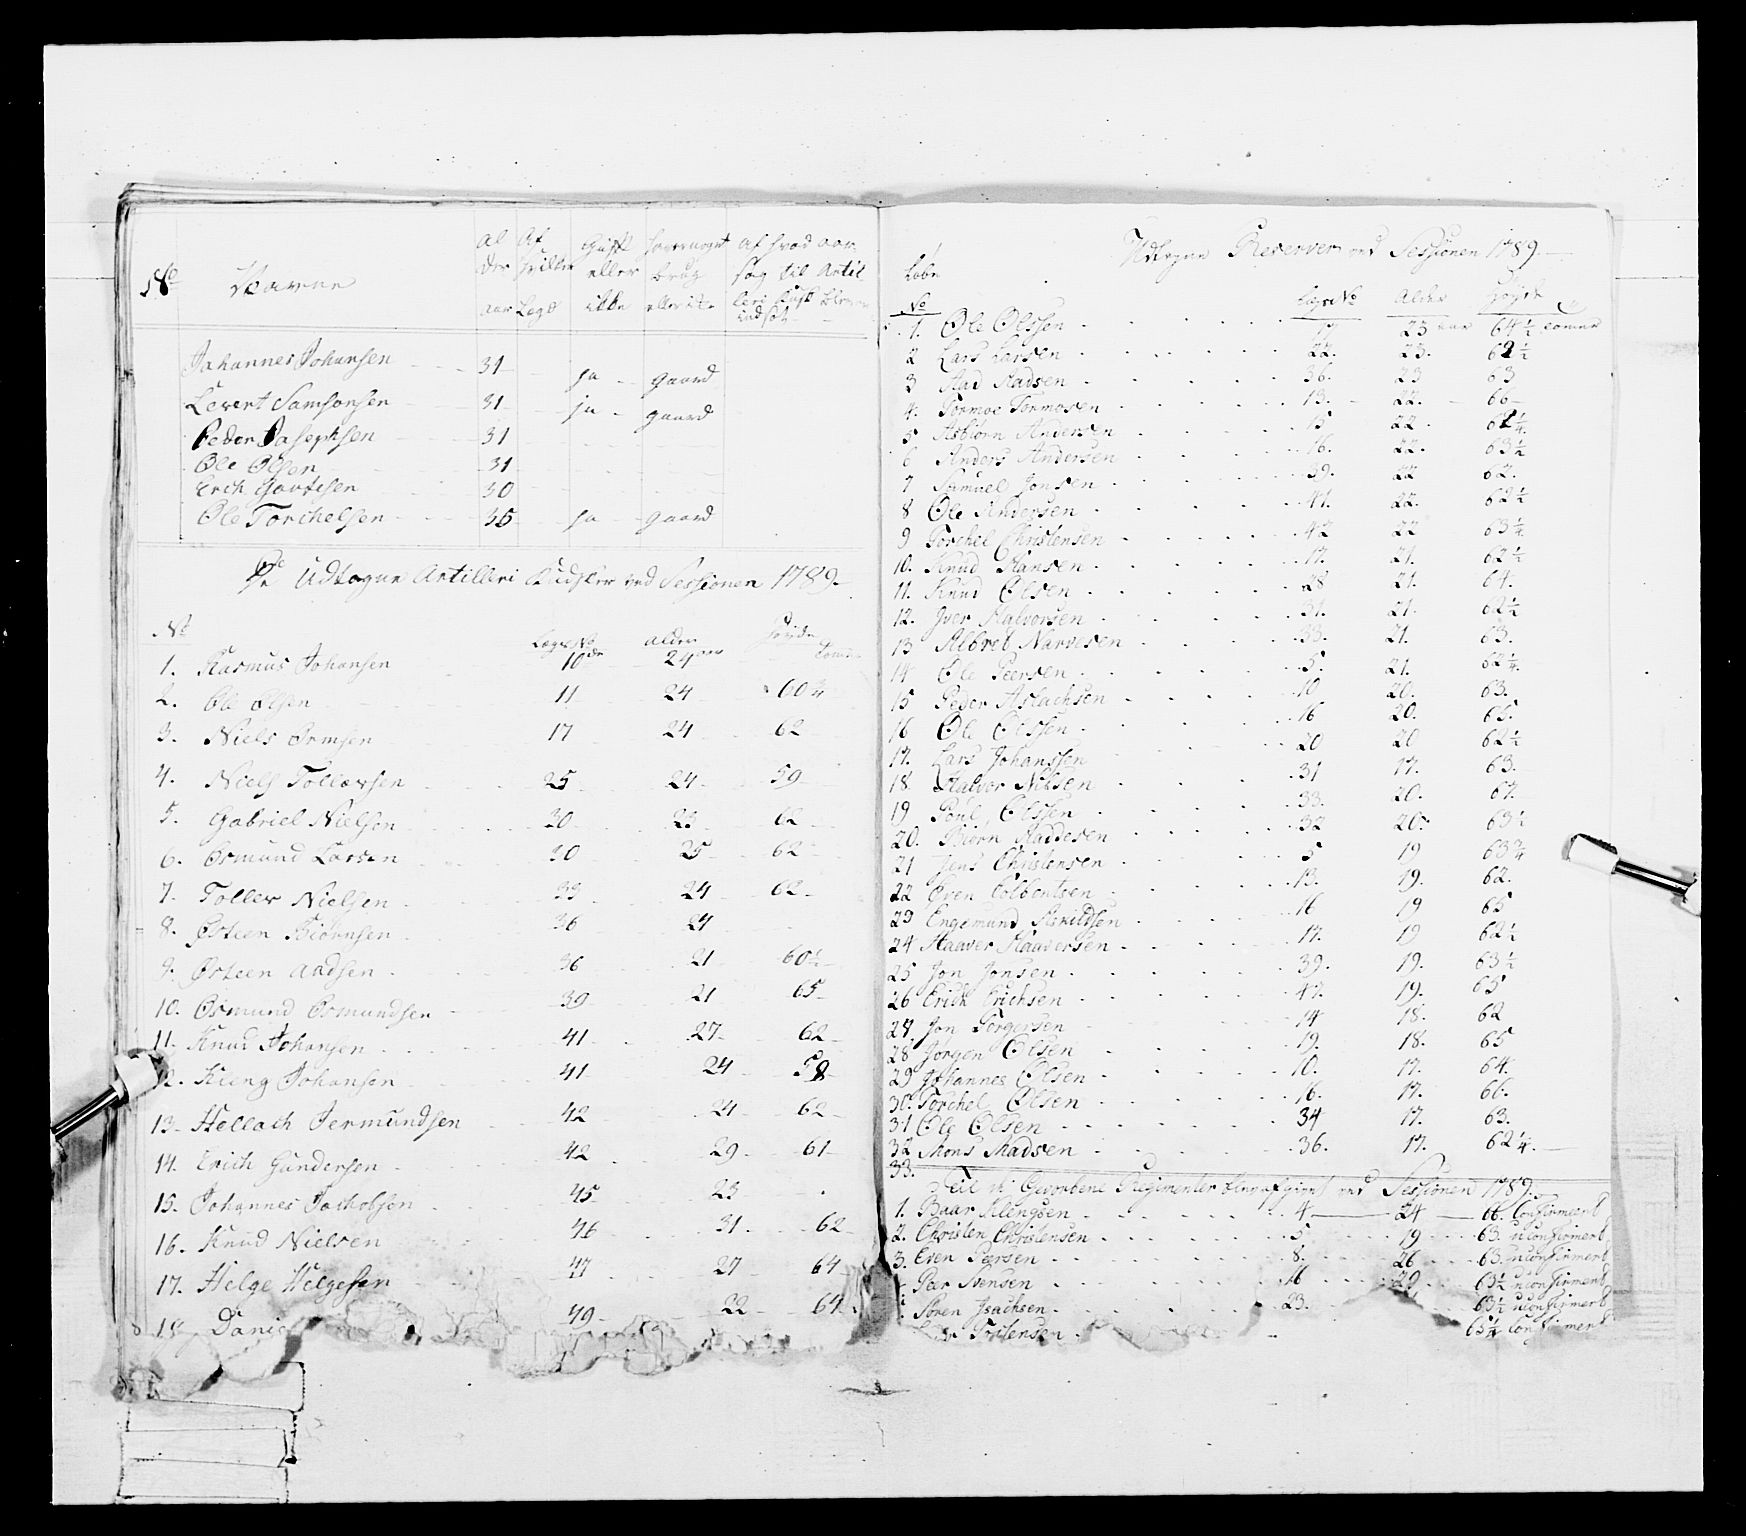 No Navne Al der aar Af hvilke Legd Gift eller ikke haver noget brug eller ikke af hvad aar sag til Artil leri
Johannes Johansen 31 ja gaard
Levert Samsonsen 31 ja gaard
Peder Josephsen 31
Ole Olsen 31
Erich Gautesen 30
Ole Torchelsen 35 ja gaard
De Udtagne Artilleri Kudsker ved Sessionen 1789
No Lægs No alder Høyde
1. Rasmus Johansen 10de 24 aar
2. Ole Olsen 11 24 60 3/4
3. Niels Ormsen 17 24 62
4. Niels Tollevsen 25 24 59
5. Gabriel Nielsen 30 23 62
6. Osmund Larsen 30 25 62
7. Tollev Nielsen 33 24 62
8. Østeen Biørnsen 36 24
9. Østeen Aadsen 36 21 60 1/2
10. Osmund Osmundsen 39 21 65
11. Knud Johansen 41 27 62
12. Kieng Johansen 41 24 58
13. Hellach Jermundsen 42 24 62
14. Erich Gundersen 42 29 61
15. Johannes Jachobsen 45 23
16. Knud Nielsen 46 31 62
17. Helge Helgesen 47 27 64
18 Danie 49 22 64
Udtagne Reserver ved Sessionen 1789
Løbe No Lægs No Alder Høyde
1. Ole Olssen 17 23 aar 64 1/2 tomer
2 Lars Larsen 22. 23. 62 1/2
3 Aad Aadsen 36. 23 63
4. Tormoe Tormosen 13. 22. 66
5 Asbiørn Andersen 15 22. 62 1/4
6 Anders Andersen 16. 22. 63 1/2
7 Samuel Jonsen 39. 22 62.
8 Ole Andersen 41. 22. 62 1/2
9 Torchel Christensen 42 22 63 1/4
10. Knud Hansen 17. 21. 62 1/2
11. Knud Olsen 28 21. 64.
12. Iver Halvorsen 31. 21. 62 1/2
13 Albret Narvesen 33. 21. 63.
14 Ole Peersen 5. 21. 62 1/4
15 Peder Aslachsen 10 20. 63.
16 Ole Olssen 16 20. 65.
17. Lars Johanssen 20 20 62 1/2
18 Halvor Nilsen 31 17. 63.
19 Poul Olssen 33. 20. 67.
20. Biørn Haddesen 32 20. 63 1/2
21 Jens Christensen 5 19 63 3/4
22 Even Colbentsen 13. 19. 62.
23 Engemund Askildsen 16 19 65
24 Haaver Haaversen 17. 19 62 1/2
25 Jon Jonsen 39. 19. 63 1/2
26 Erich Erichsen 47. 19. 65
27. Jon Torgersen 14 18. 62
28. Jørgen Olsen 19. 18. 65
29 Johannes Olsen 10. 17. 64.
30. Torchel Olsen 16. 17. 66.
31 Ole Olsen 34 17. 63.
32 Mons Madsen 36. 17. 62 1/4.
33.
Til de Gevorbene Regimenter blev afgivet ved Sessionen 1789.
1. Baar Klengsen 4 24 66. Confirmert
2. Christen Christensen 5 19 63. uConfirmert
3. Even Peersen 8. 26 63. uConfirmert
Peer Svensen 16 29 63 1/2 uConfirmert
Søren Isachsen 23. 63 1/2 uConfirmert
Tostensen 65 1/4 Confirmert